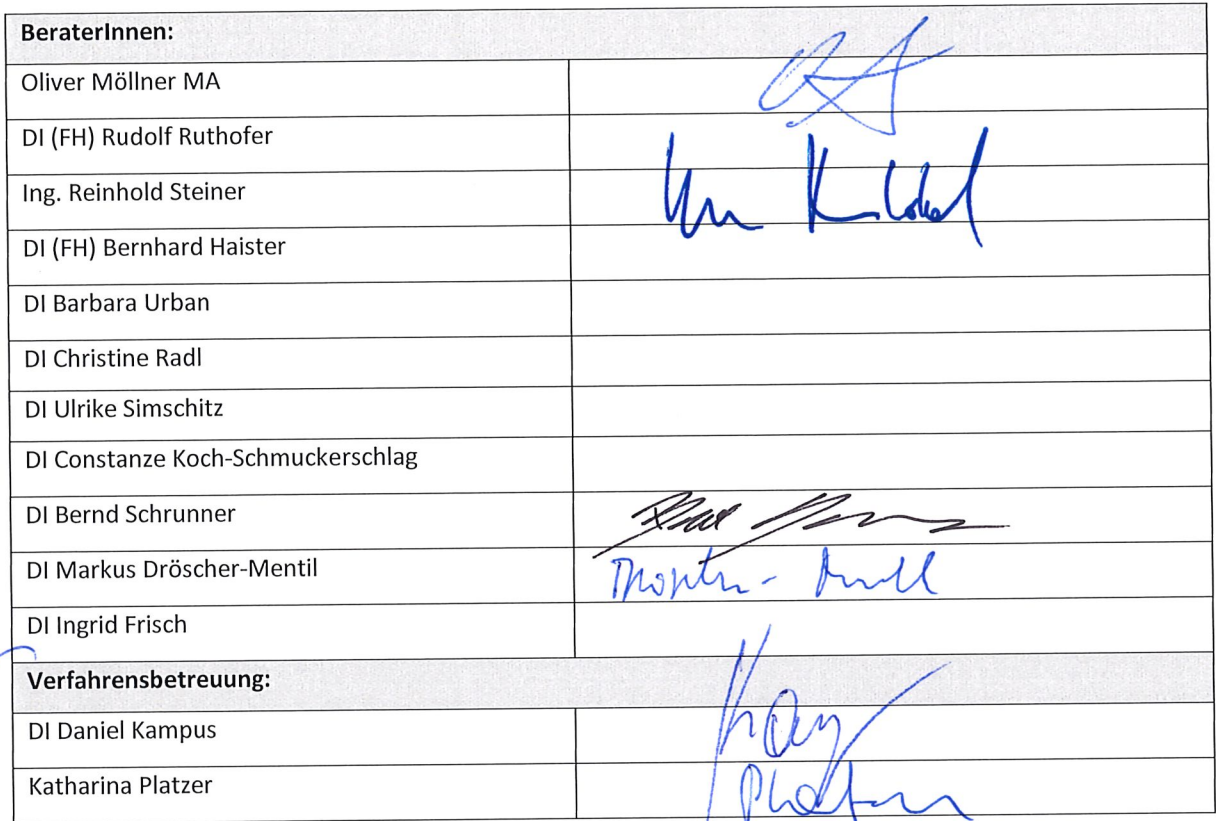 BeraterInnen:
Oliver Möllner MA
DI (FH) Rudolf Ruthofer
Ing. Reinhold Steiner
DI (FH) Bernhard Haister
DI Barbara Urban
DI Christine Radl
DI Ulrike Simschitz
DI Constanze Koch-Schmuckerschlag
DI Bernd Schrunner
DI Markus Dröscher-Mentil
DI Ingrid Frisch
Verfahrensbetreuung:
DI Daniel Kampus
Katharina Platzer